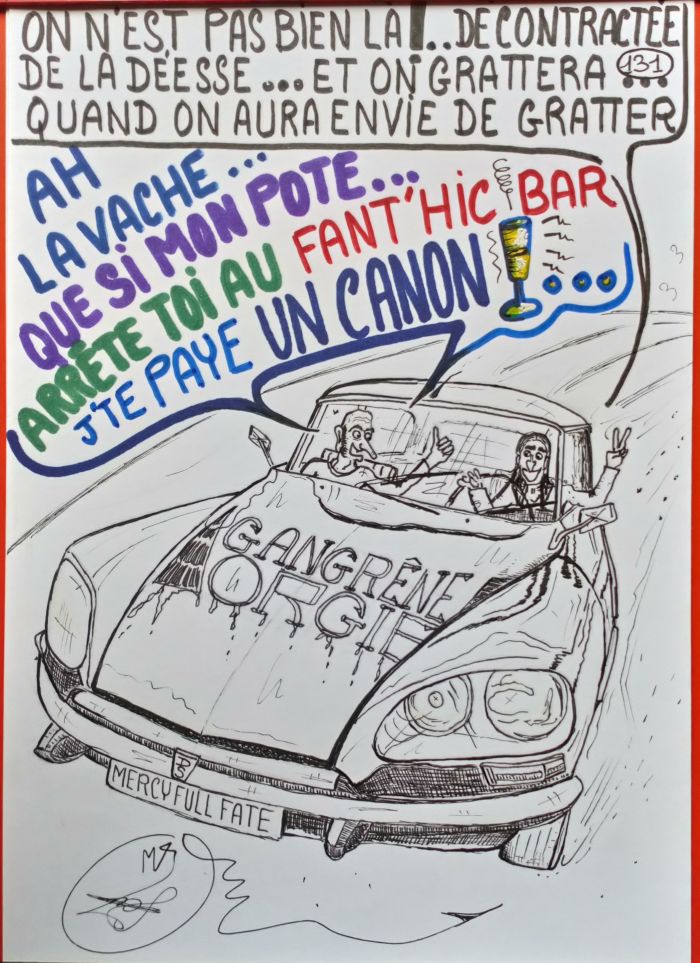 ON N'EST PAS BIEN LA !.. DECONTRACTÉE
DE LA DÉESSE... ET ON GRATTERA 131
QUAND ON AURA ENVIE DE GRATTER
AH
LA VACHE...
QUE SI MON POTE...
ARRÊTE TOI AU FANT'HIC BAR
J'TE PAYE UN CANON !...
GANGRÊNE
ORGIE
DS
MERCY FULL FATE